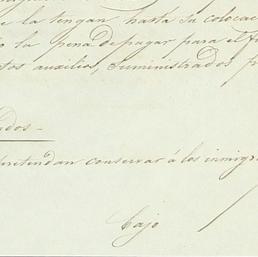 e la tengan hasta su colocac
la pena de pagar para el f
tos auxilios, suministrados p
ados.
pretendan conservar á los inmigra
Bajo